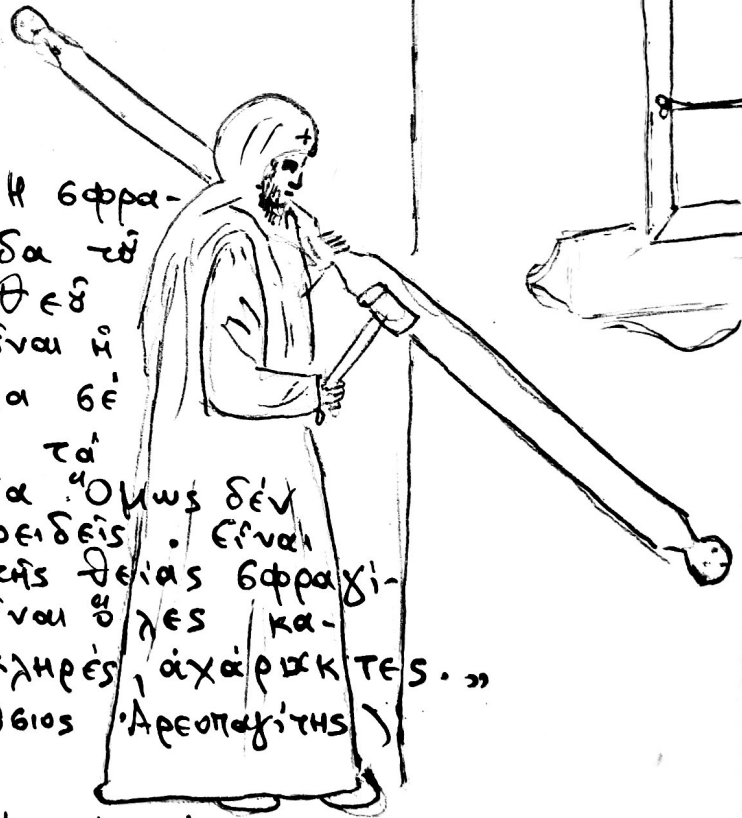 Ἡ σφρα-
δα τοῦ
θεοῦ
ἶναι ἡ
α σέ
τά
α Ὅμως δέν
ρειδεῖς. εἶναι
τῆς θείας σφραγί-
ναι ὅλες κα-
ληρές, ἀχάρακτες.»
σιος Ἀρεοπαγίτης)